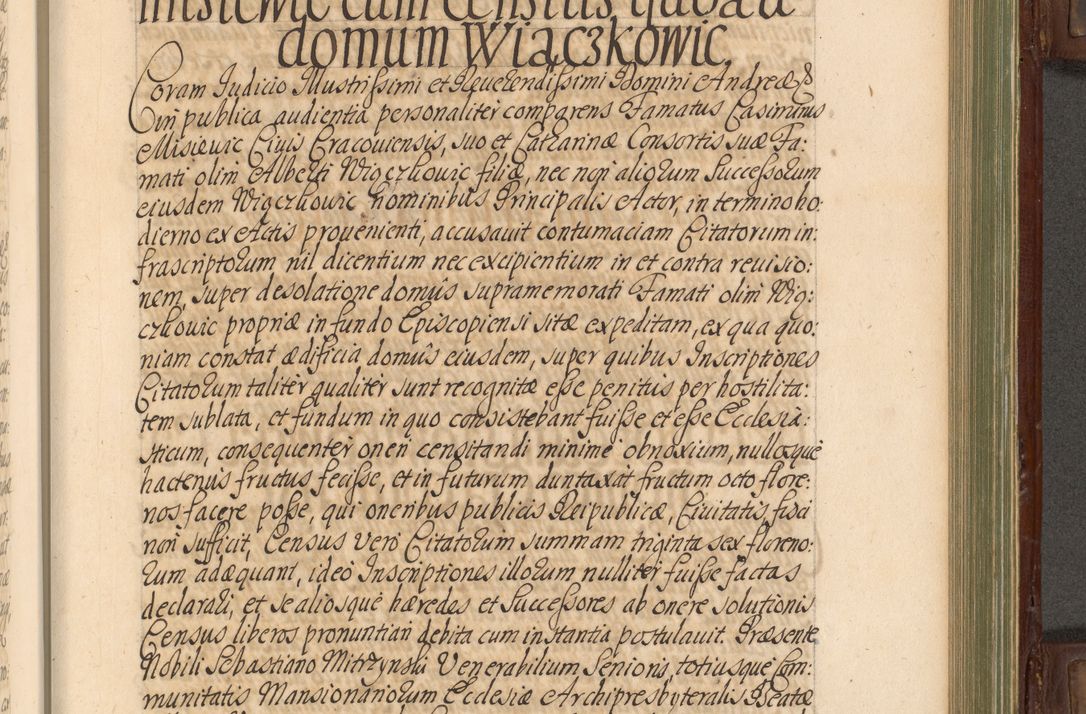 domum Wiączkowic.
Coram Judicio Illustrissimi et Reverendissimi Domini Andreæ &
in publica audientia personaliter comparens Famatus Casimirus
Misiewic Civis Cracoviensis, suo et Catharinæ Consortis suæ Fa:
mati olim Alberti Wiączkowic filiæ, nec non aliorum Successorum
eiusdem Wiączkowic nominibus Principalis Actor, in termino ho:
dierno ex Actis provenienti, accusavit contumaciam Citatorum in:
frascriptorum nil dicentium nec excipientium in et contra revisio:
nem, super desolatione domûs supramemorati Famati olim Wią:
czkowic propriæ in fundo Episcopiensi sitæ expeditam, ex qua quo:
niam constat ædificia domûs eiusdem, super quibus Inscriptiones
Citatorum taliter qualiter sunt recognitæ esse penitus per hostilita:
tem sublata, et fundum in quo consistebant fuisse et esse Ecclesia:
sticum, consequenter oneri censitandi minime obnoxium, nullosque
hactenus fructus fecisse, et in futurum duntaxat fructum octo flore:
nos facere posse, qui oneribus publicis Reipublicæ, Civitatis, fisci
non sufficit, Census vero Citatorum summam triginta sex floreno:
rum adæquant, ideo Inscriptiones illorum nulliter fuisse factas
declarari, et se aliosque hæredes et Successores ab onere solutionis
Census liberos pronuntiari debita cum instantia postulavit. Præsente
Nobili Sebastiano Mitrzynski Venerabilium Senioris, totiusque Com:
munitatis Mansionariorum Ecclesiæ Archipresbyteralis Beatæ